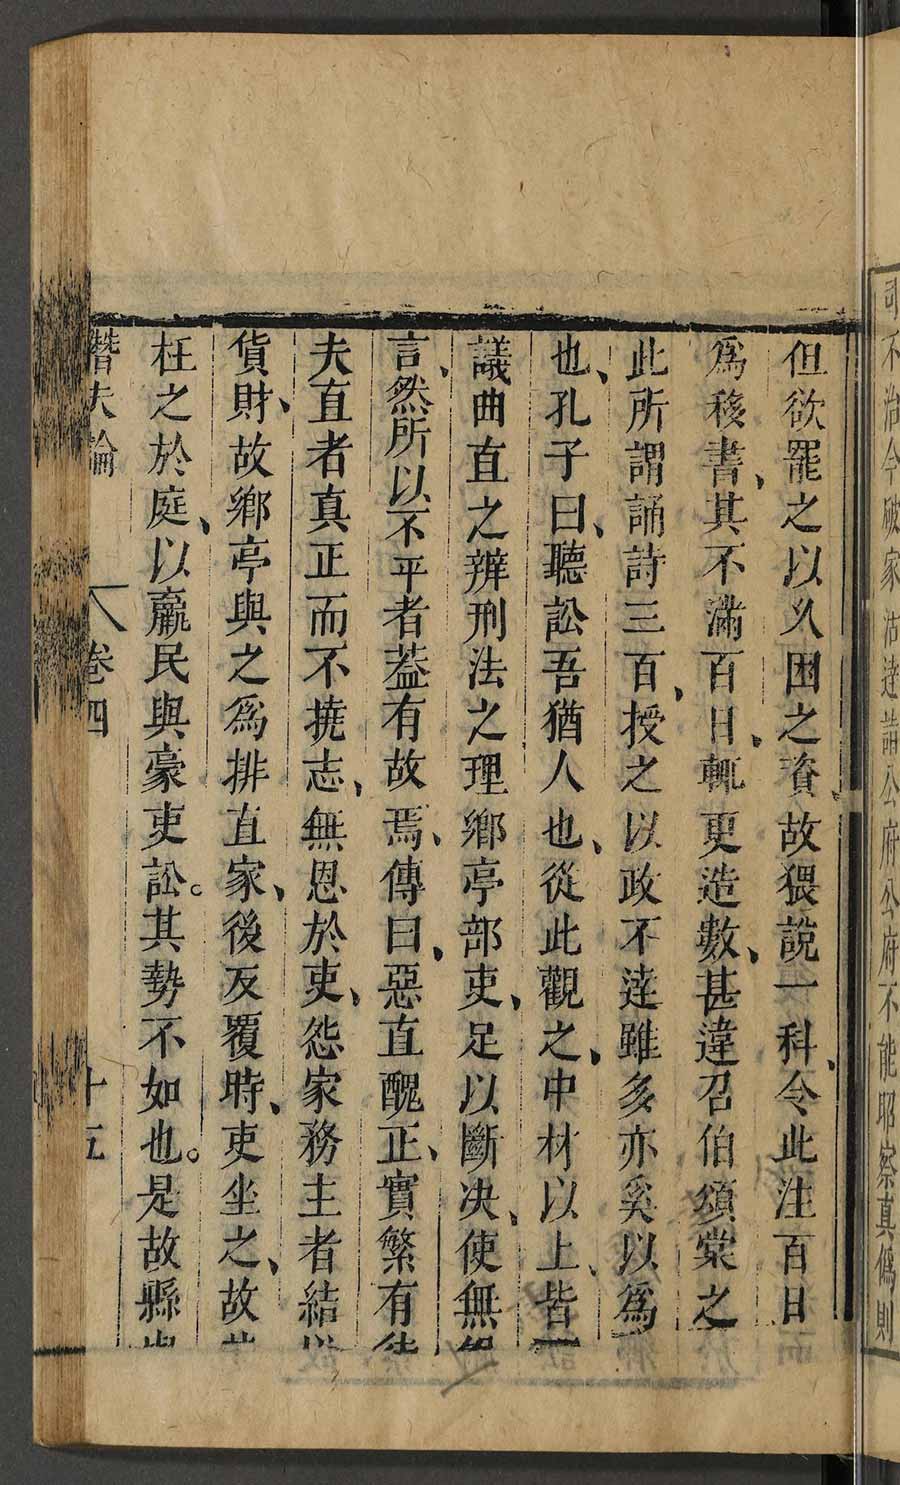 司不治令破家活遠詣公府公府不能昭察真僞則
但欲罷之以久困之資故猥說一科令此注百日
爲移書、其不滿百日、輒更造數、甚違召伯頌棠之
此所謂誦詩三百、授之以政不達雖多亦奚以爲
也、孔子曰、聽訟吾猶人也、從此觀之、中材以上、皆
議曲直之辨刑法之理鄉亭部吏、足以斷决、使無
言、然所以不平者葢有故焉、傳曰、惡直醜正、實繁有
夫直者真正而不撓志、無恩於吏、怨家務主者結以
貨財、故鄉亭與之爲排直家、後反覆時、吏坐之、故
枉之於庭、以羸民與豪吏訟。其勢不如也。是故縣
潛夫論 卷四 十五